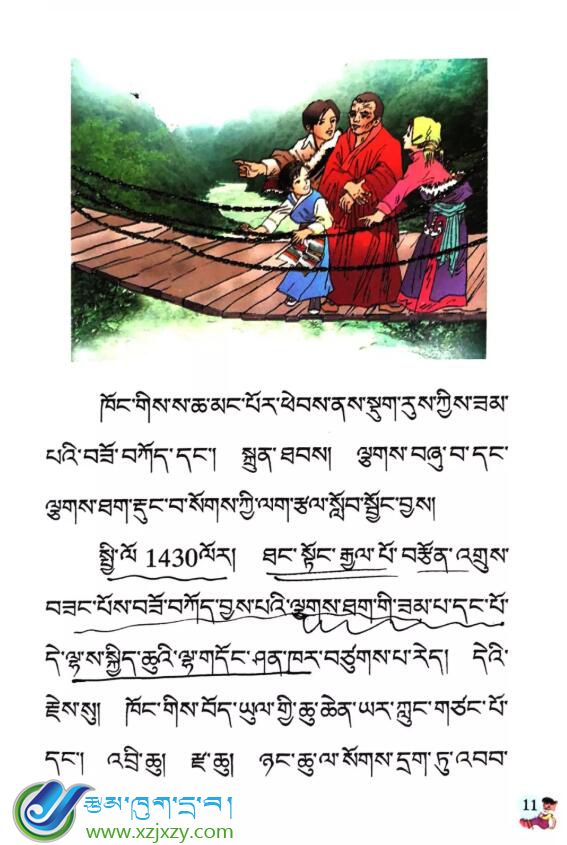 ཁོང་གིས་ས་ཆ་མང་པོར་ཕེབས་ནས་སྡུག་རུས་ཀྱིས་ཟམ་
པའི་བཟོ་བཀོད་དང་། སྐྲུན་ཐབས། ལྕགས་བཞུ་བ་དང་
ལྕགས་ཐག་རྡུང་བ་སོགས་ཀྱི་ལག་རྩལ་སློབ་སྦྱོང་བྱས།
སྤྱི་ལོ་ 1430ལོར། ཐང་སྟོང་རྒྱལ་པོ་བརྩོན་འགྲུས་
བཟང་པོས་བཟོ་བཀོད་བྱས་པའི་ལྕགས་ཐག་གི་ཟམ་པ་དང་པོ་
དེ་ལྷ་ས་སྐྱིད་ཆུའི་ལྷ་གདོང་ཤན་ཁར་བཙུགས་པ་རེད། དེའི་
རྗེས་སུ། ཁོང་གིས་བོད་ཡུལ་གྱི་ཆུ་ཆེན་ཡར་ཀླུང་གཙང་པོ་
དང་། འབྲི་ཆུ། རྫ་ཆུ། ཉང་ཆུ་ལ་སོགས་དྲག་ཏུ་འབབ་
11
རྩམ་ཁུག་དྲ་བ།
www.xzjxzy.com